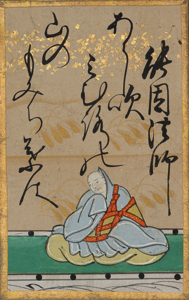 能因法師
あらし吹
三室の
山の
もみち葉は